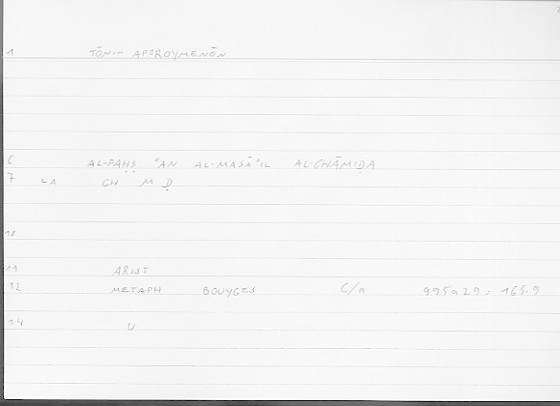 1 TŌN... APOROYMENŌN
6 AL-FAḤṢ ʿAN AL-MASĀʾIL AL-GHĀMIḌA
7 LA GH M Ḍ
10
11 ARIST
12 METAPH BOUYGES C/a 995a29; 165.9
14 U